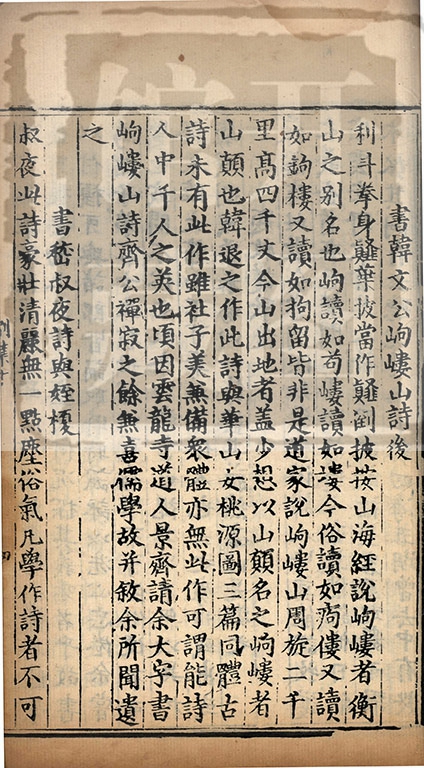 書韓文公岣嶁山詩後
科斗拳身薤葉披當作薤倒披按山海經說岣嶁者衡
山之别名也岣讀如苟嶁讀如塿今俗讀如痀僂又讀
如鉤樓又讀如拘留皆非是道家說岣嶁山周旋二千
里髙四千丈今山出地者蓋少想以山顛名之岣嶁者
山顛也韓退之作此詩與華山女桃源圖三篇同體古
詩未有此作雖杜子美兼備衆體亦無此作可謂能詩
人中千人之英也頃因雲龍寺道人景齊請余大字書
岣嶁山詩齊公禪寂之餘無喜儒學故并敘余所聞遺
之
書嵇叔夜詩與姪榎
叔夜此詩豪壯清麗無一點塵俗氣凡學作詩者不可